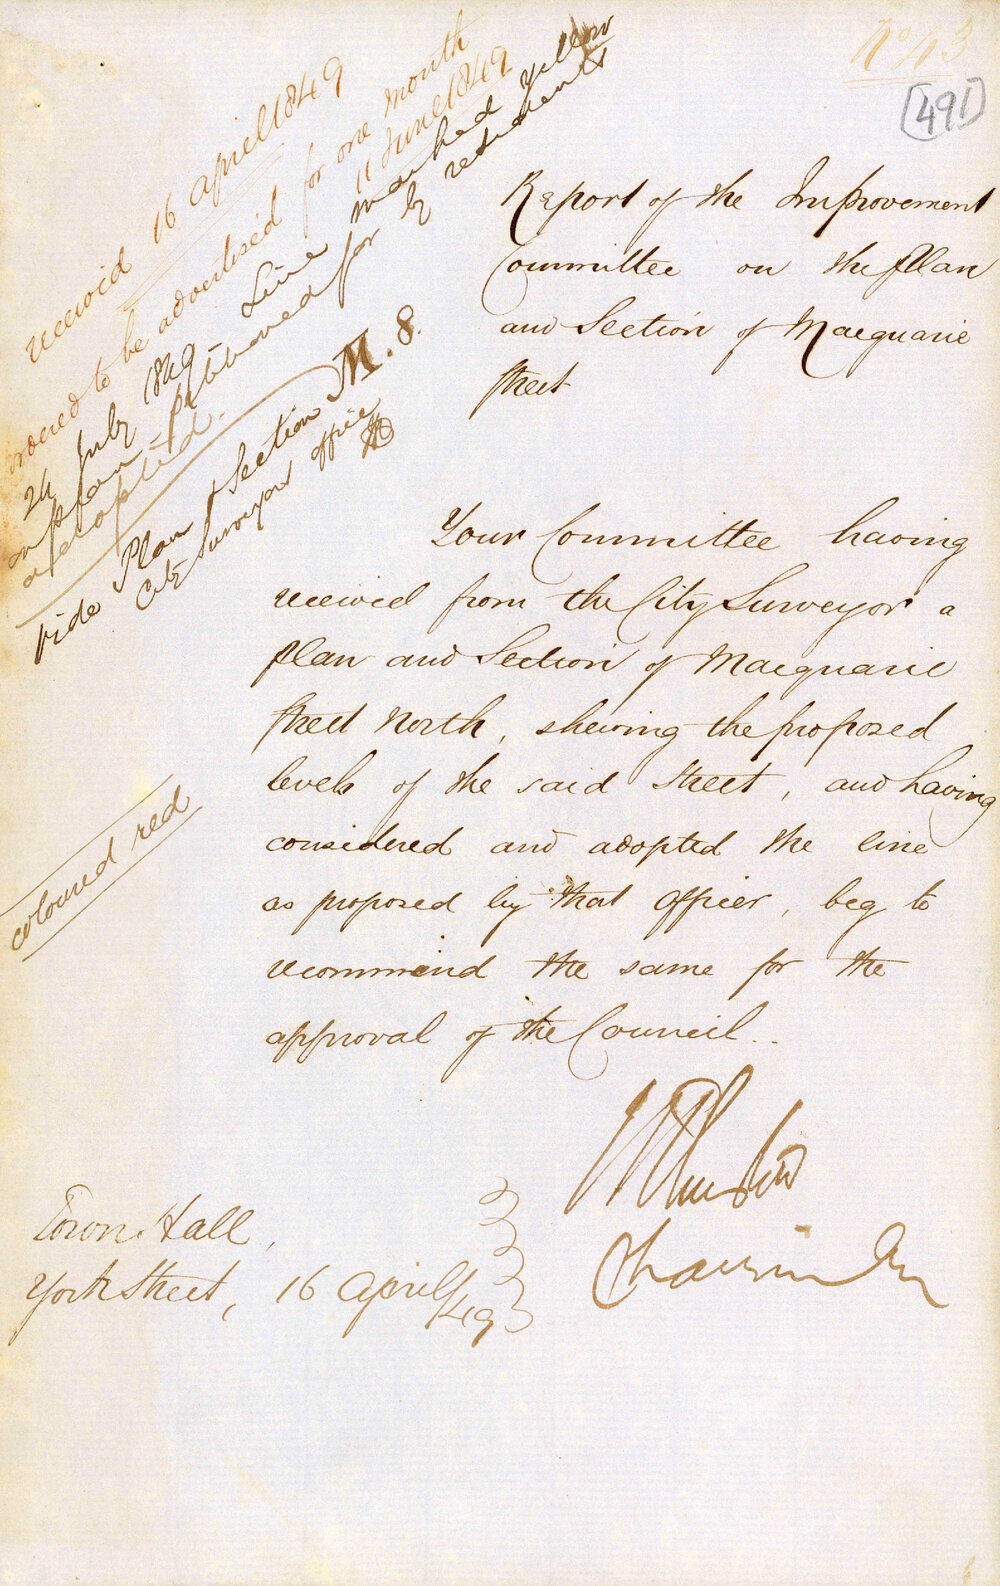 No 43
[491]
received 16 April 1849
ordered to be advertised for one month
11 June 1849
24 July 1849 - Line marked yellow
on plan petitioned for by residents
adopted.
Vide Plan & Section M.8.
City Surveyors office
Report of the Improvement
Committee on the Plan
and Section of Macquarie
Street
Your Committee having
received from the City Surveyor a
plan and Section of Macquarie
Street North, shewing the proposed
levels of the said Street, and having
coloured red
considered and adopted the line
as proposed by that officer, beg to
recommend the same for the
approval of the Council..
Chairman
Town Hall,
York Street, 16 April/49